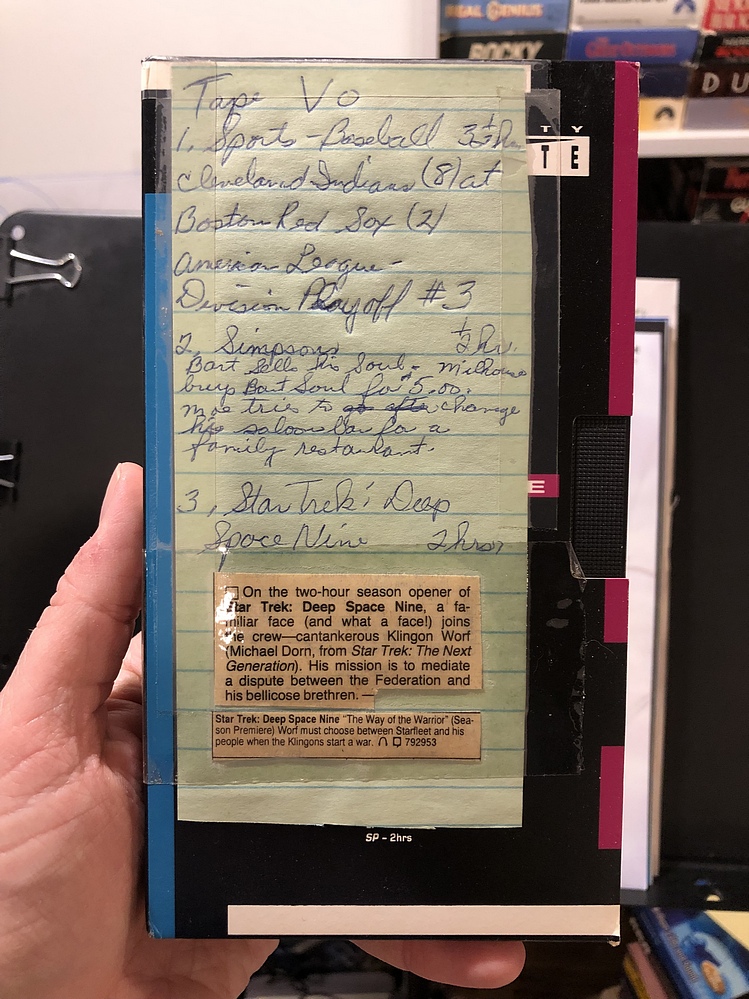 REAL GENIUS
ROCKY
DU
TY
TE
Tape VO
1. Sports - Baseball 3½ hr.
Cleveland Indians (8) at
Boston Red Sox (2)
American League -
Division Playoff #3
2. Simpsons ½ hr.
Bart Sells his Soul - Milhouse
buys Bart Soul for $5.00.
Moe tries to go after change
his saloon bar for a
family restaurant.
3. Star Trek: Deep
Space Nine 2 hrs
E
On the two-hour season opener of
Star Trek: Deep Space Nine, a fa-
miliar face (and what a face!) joins
the crew—cantankerous Klingon Worf
(Michael Dorn, from Star Trek: The Next
Generation). His mission is to mediate
a dispute between the Federation and
his bellicose brethren. —
Star Trek: Deep Space Nine "The Way of the Warrior" (Sea-
son Premiere) Worf must choose between Starfleet and his
people when the Klingons start a war. 792953
SP - 2hrs